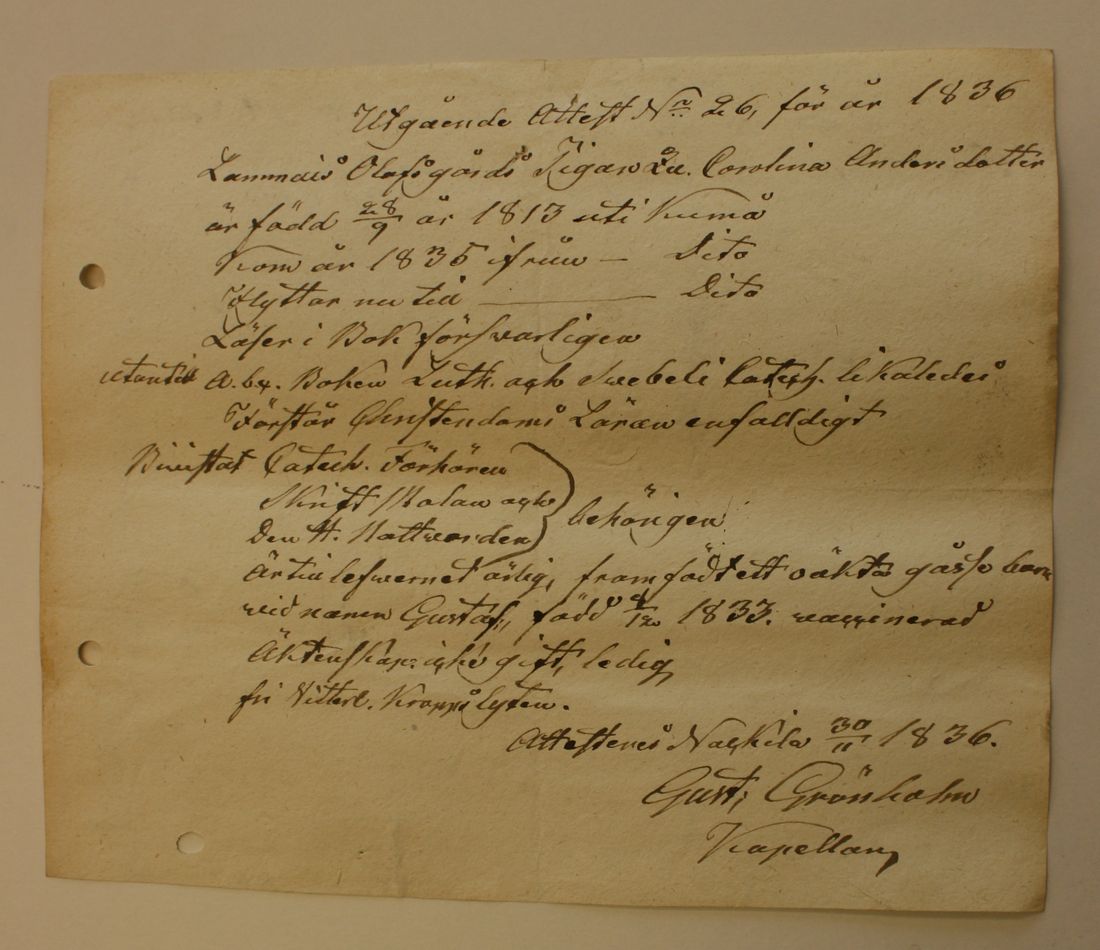 Utgående Attest No 26, för år 1836
Lammais Olofsgårds Pigan Ea. Carolina Anders dotter
är född 28/9 år 1813 uti Kumå
Kom år 1835 ifrån — Dito
Flyttar nu till — Dito
Läser i Bok förswarligen
utantill A.b.c. Boken Luth. och Swebeli Catech. likaledes
Förstår Christendoms Läran enfalldigt
Biwistat Catech. Förhören
Skrift skolan och
Den H. Nattwarden
behörigen
Är till lefwernet ärlig, framfödt ett oäkta gåsse barn
vid namn Gustaf, född 4/12 1833. vaccinerad
Äktenskap: icke gift, ledig
fri Vitterl. Kropps lyten.
Attesteras Nackila 30/11 1836.
Gust: Grönholm
Kapellan